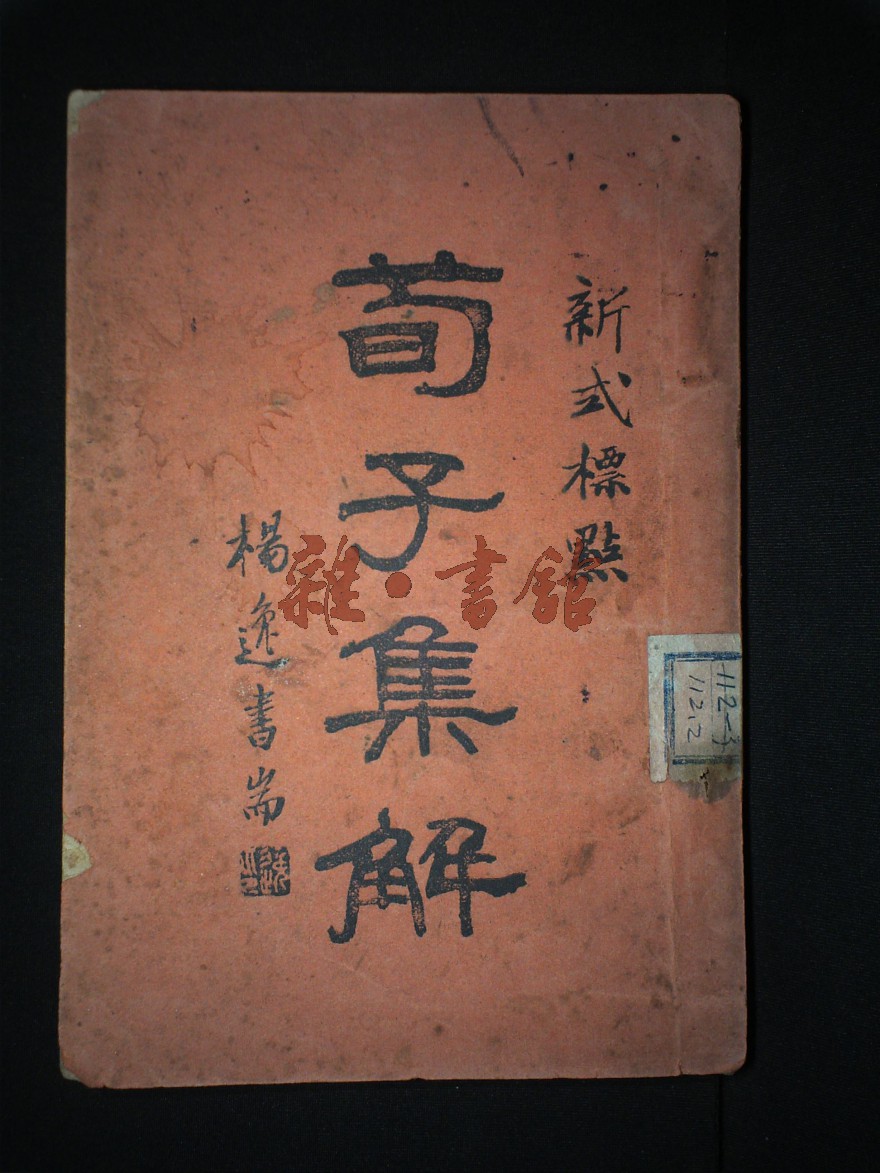 新式標點
荀子集解
楊逸書耑
雜·書館
112-3
112.2